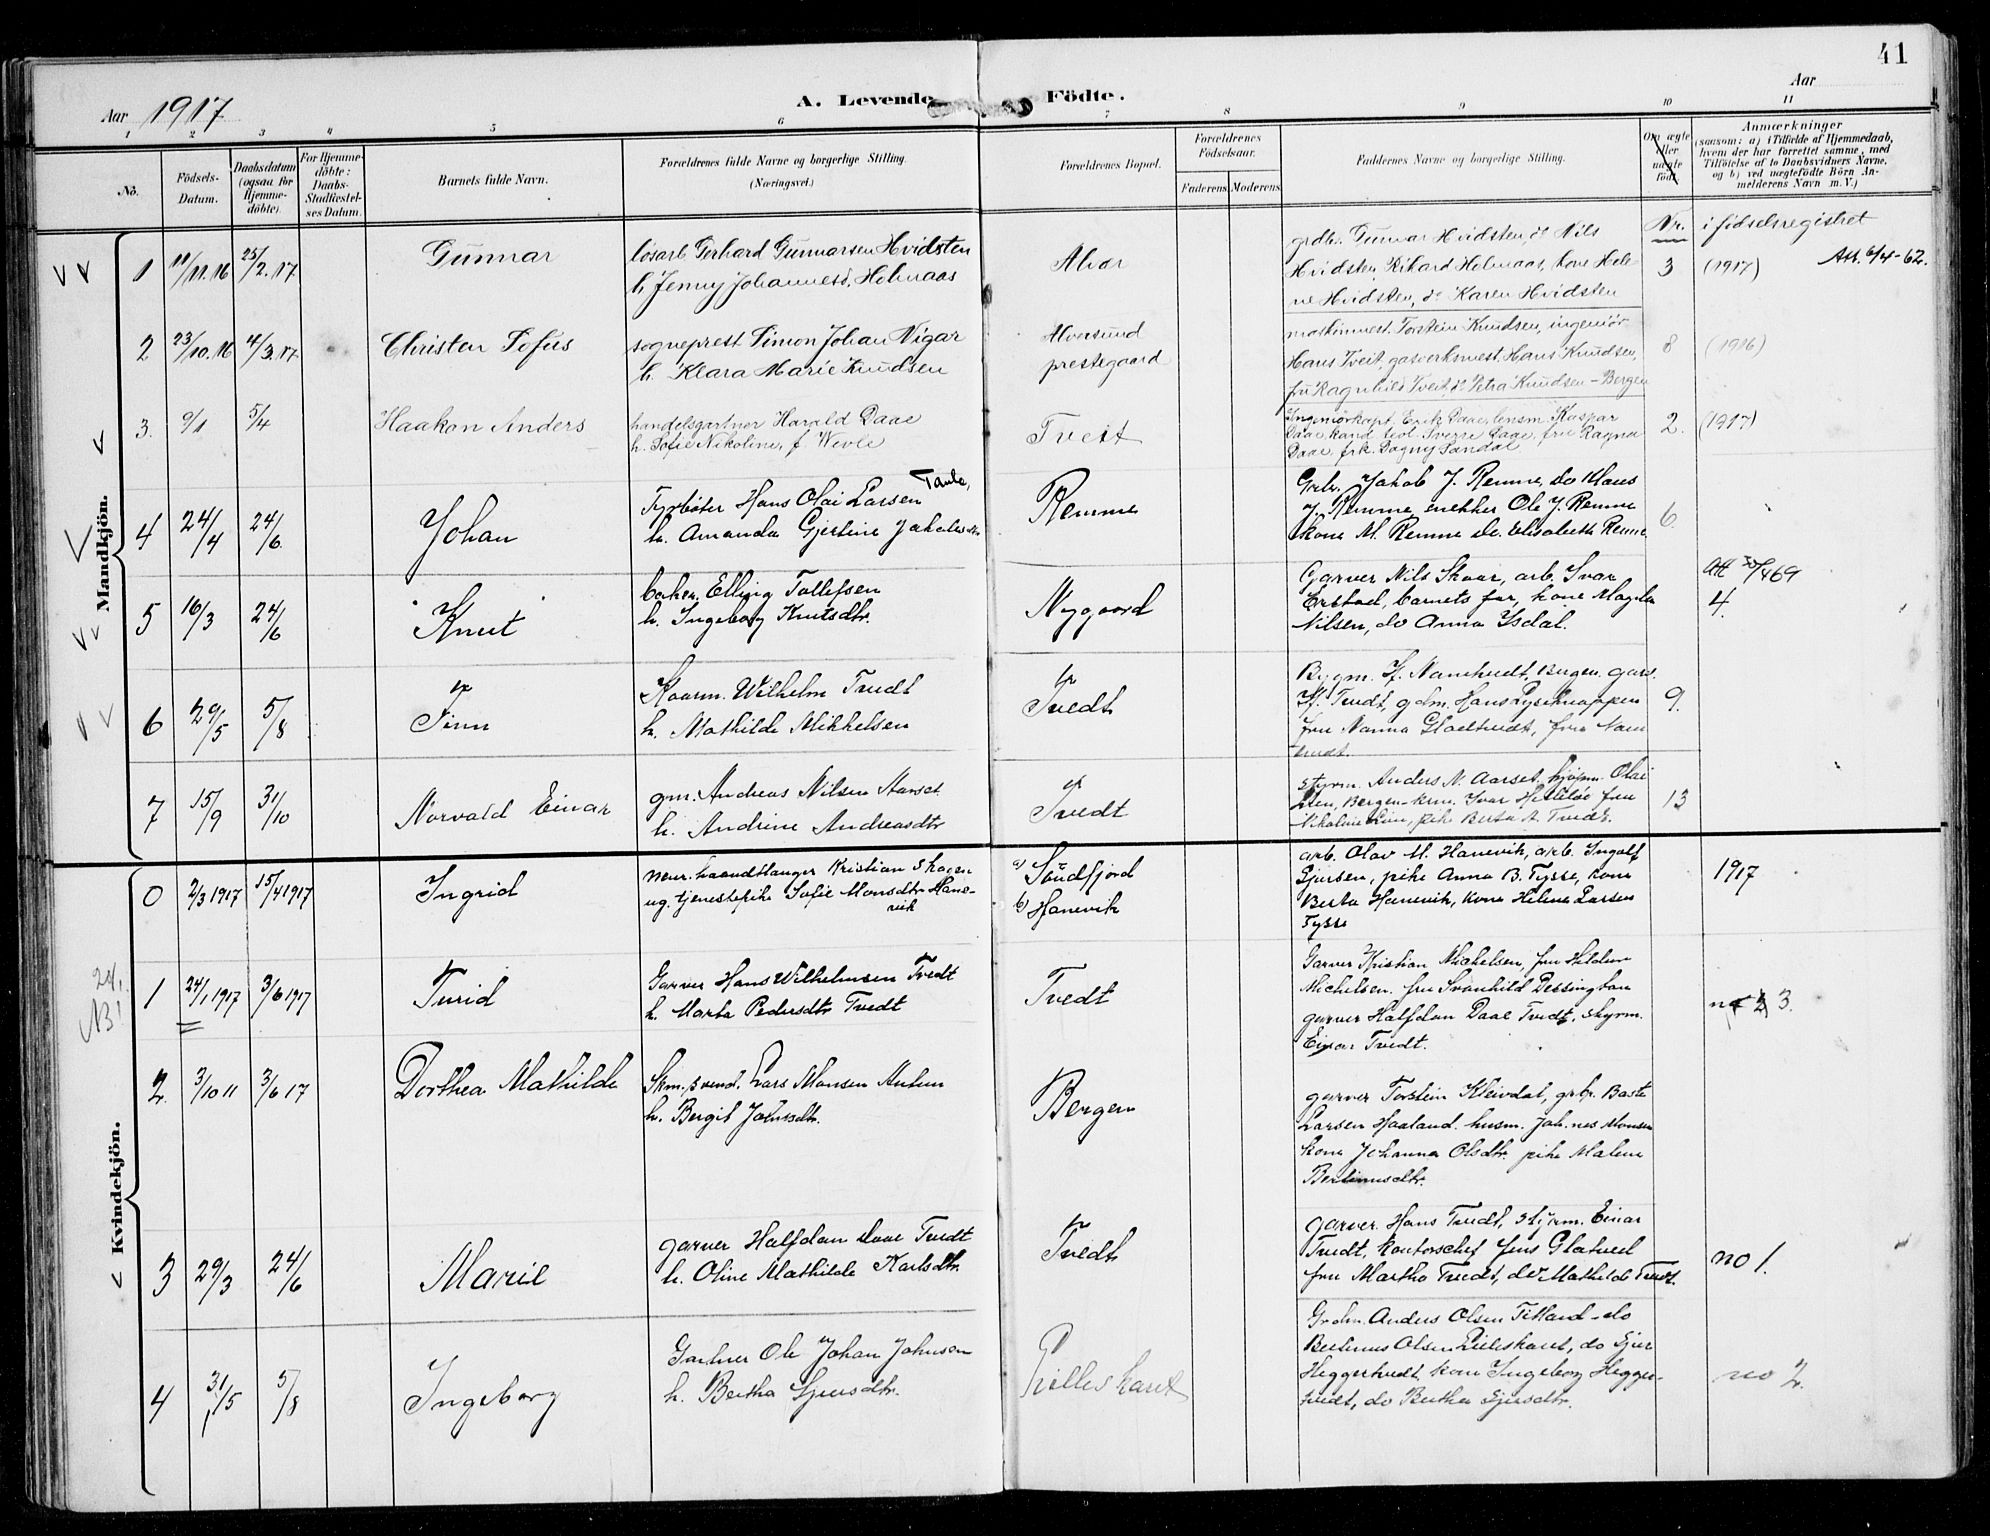 41
Aar 1917
A. Levende Födte.
Aar
1 2 3 4 5 6 7 8 9 10 11
No.
Födsels-Datum.
Daabsdatum (ogsaa for Hjemme-döbte).
For Hjemme-döbte: Daabs-Stadfæstel-ses Datum.
Barnets fulde Navn.
Forældrenes fulde Navne og borgerlige Stilling.
(Næringsvei.)
Forældrenes Bopæl.
Forældrenes Födselsaar.
Faderens.
Moderens.
Faddernes Navne og borgerlige Stilling.
Om ægte eller uægte födt.
Anmærkninger
(saasom: a) i Tilfælde af Hjemmedaab,
hvem der har forrettet samme, med
Tilföielse af to Daabsvidners Navne,
og b) ved uægtefödte Börn An-
melderens Navn m. V.)
Nr. i födselsregistret
Mandkjön.
1 11/11.16 25/2.17 Gunnar
løsarb. Gerhard Gunnarsen Hvidsten
h. Jenny Johannesd. Holmaas
Alver
grdbr. Gunnar Hvidsten, do Nils
Hvidsten, Rikard Holmaas, kone Hele-
ne Hvidsten, do Karen Hvidsten
3 (1917) Att. 6/4-62.
2 23/10.16 4/3.17 Christen Sofus
sogneprest Simon Johan Nigar
h. Klara Marie Knudsen
Alversund
prestegaard
maskinmest. Torstein Knudsen, ingeniör
Hans Tveit, gasverksmest. Hans Knudsen,
fru Ragnhild Tveit, do Petra Knudsen - Bergen
8 (1916)
3. 9/1 5/4 Haakon Anders
handelsgartner Harald Daae
h. Sofie Nikoline, f.
Tveit
Ingeniörkapt. Erik Daae, lensm. Kaspar
Daae, kand. teol. Sverre Daae, fru Ragna
Daae, frk. Dagny Sandal
2. (1917)
4 24/4 24/6 Johan
Fyrbøter Hans Olai Larsen
h. Amanda Gjertine
Remme
Grbr. Jakob J. Remme, do Klaus
J. Remme, snekker Ole J. Remme
kone M. Remme do. Elisabeth Remme
6.
5 16/3 24/6 Knut
baker. Elling Tollefsen
h. Ingeborg Knutsdtr.
Nygaard
Garver Nils Skaar, arb. Ivar
Erstad, barnets far, kone Magda
Nilsen, do Anna Isdal.
4.
6 29/5 5/8 Finn
Wilhelm Tvedt
h. Mathilde Mikkelsen
Tvedt
Bygm. Bergen, garv.
Tvedt, gdm. Hans
fru Nanna fru Nam
tvedt.
9.
7 15/9 31/10 Norvald Einar
gm. Andreas Nilsen
h. Andrine Andreasdtr
Tvedt
styrm. Anders N. Aarset, Olai
Bergen Ivar fru
Nikoline pike Berta A. Tvedt.
13
Kvindekjön.
0 2/3 1917 15/4 1917 Ingrid
mur. haandtlanger Kristian Skogen
ug. tjenestepike Sofie Monsdtr Hane-
vik
a) Söndfjord
b) Hanevik
arb. Olav M. Hanevik, arb. Ingolf
Sjursen, pike Anna B. Tysse, kone
Berta Hanevik, kone Helene Larsen
Tysse
1917
24.
NB!
1 24/1 1917 3/6 1917 Turid
Garver Hans Wilhelmsen Tvedt
h. Marta Pedersdtr Tvedt
Tvedt
Garver Kristian Michelsen, fru Hildur
Michelsen. fru Svanhild Dessington
garver Halfdan Daae Tvedt, styrm.
Einar Tvedt.
3.
2. 3/10 11 3/6 17 Dorthea Mathilde
Skm.svend. Lars Monsen
h. Bergit Johnsdtr.
Bergen
garver Torstein Kleivdal, grbr. Baste
Larsen Haaland. husm. Joh.nes Monsen
kone Johanna Olsdtr. pike Malene
3 29/3 24/6 Marie
garver Halfdan Daae Tvedt
h. Oline Mathilde Karlsdtr.
Tvedt
garver. Hans Tvedt, styrm. Einar
Tvedt, kontorschef Jens Glatved
fru Martha Tvedt, do Mathilde Tvedt.
no 1.
4 31/5 5/8 Ingeborg
Gartner Ole Johan Johnsen
h. Bertha Sjursdtr.
Lilleskaret
Grdm. Anders Olsen Titland - do
Bertinus Olsen Lilleskaret, do Sjur
Heggertvedt, kone Ingeborg Hegger-
tvedt, do Bertha Sjursdtr.
no 2.